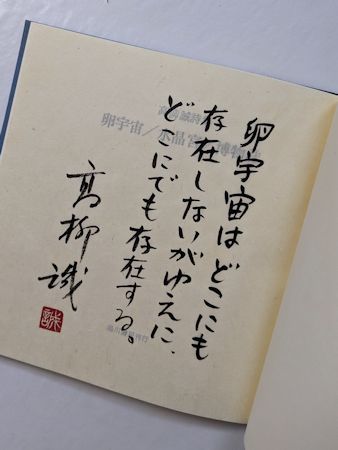 卵宇宙はどこにも
存在しないがゆえに、
どこにでも存在する。
髙柳誠
誠
卵宇宙/水晶宮/博物